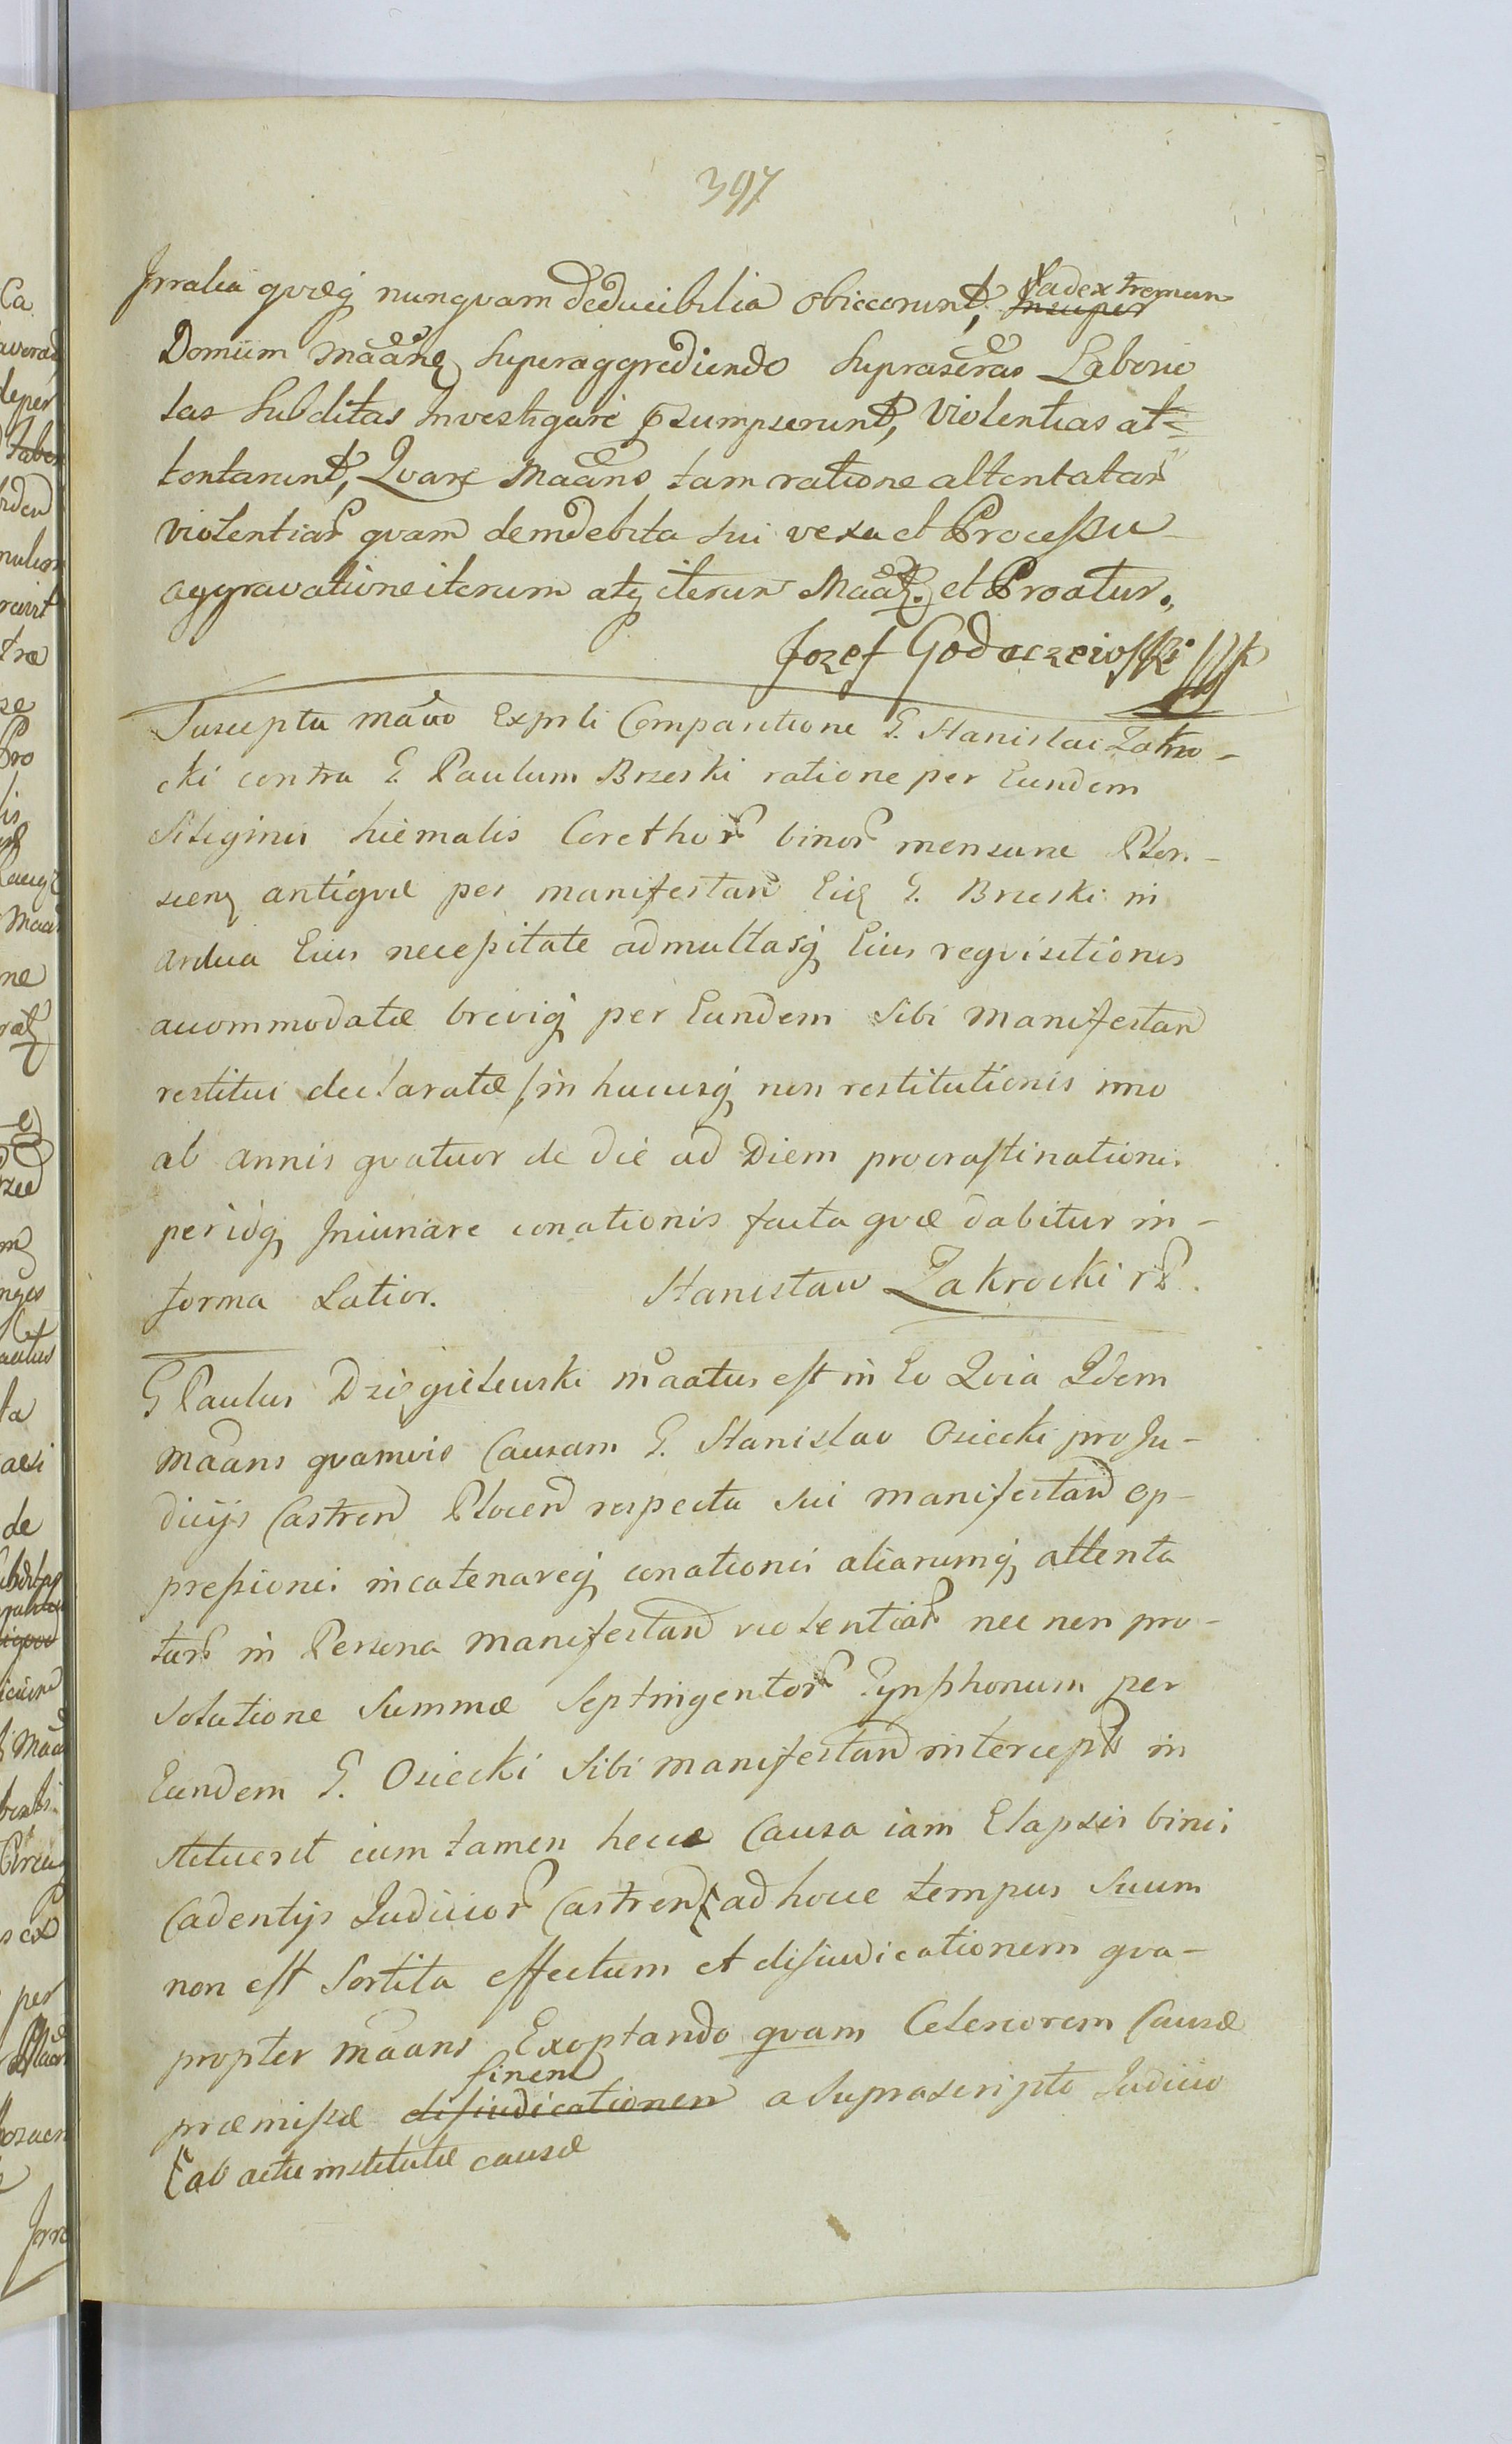 397
Irralia qvæq nunqvam deducibilia obiecerunt, ad extremum Insuper
Domum Maãne superaggrediendo suprascras Laborio
sas Subditas investigare psumpserunt, violentias at=
tentarunt, Qvare Maãns tam ratione attentatar
violentiar qvam de indebita sui vexa et Processu
aggravatione iterum atq iterum Maãt. et Proatur.
Jozef Godaczewski
Suscepta mãvo Expnti Comparitione G. Stanislai Zakro-
cki contra G Paulum Brzeski ratione per Eundem
Siliginis hiemalis Corethor binor mensuræ Plon-
scen antiqvæ per manifestan G. Brzeski in
ardua Eius necessitate ad multasq Eius reqvisitiones
accommodatæ breviq per Eundem Sibi Manifestan
restitui declaratæ in hucusq non restitutionis imo
ab annis qvatuor de die ad Diem procrastinationis
per idq Iniuriare conationis facta qvæ dabitur in-
forma Latior. Stanisław Zakrocki
G Paulus Dzięgielewski mãatus est in Eo Qvia Idem
Mãans qvamvis Causam G. Stanislao Osiecki pro Ju-
dicijs Castren Plocen respectu sui manifestan op-
pressionis incatenareq conationis aliarumq attenta
tar in Persona manifestan violentiar nec non pro-
solutione Summæ Septingentor Tynphonum per
Eundem G. Osiecki Sibi manifestan intercept in
stituerit cum tamen hecce Causa iam Elapsis binis
Cadentijs Judicior Castren ad hocce tempus Suum
non est Sortita effectum et disiudicationem qva-
propter mãans Exoptando qvam Celeriorem Causæ
finem
præmissæ disiudicationem a Suprascripto Judicio
ab actu institutæ causæ